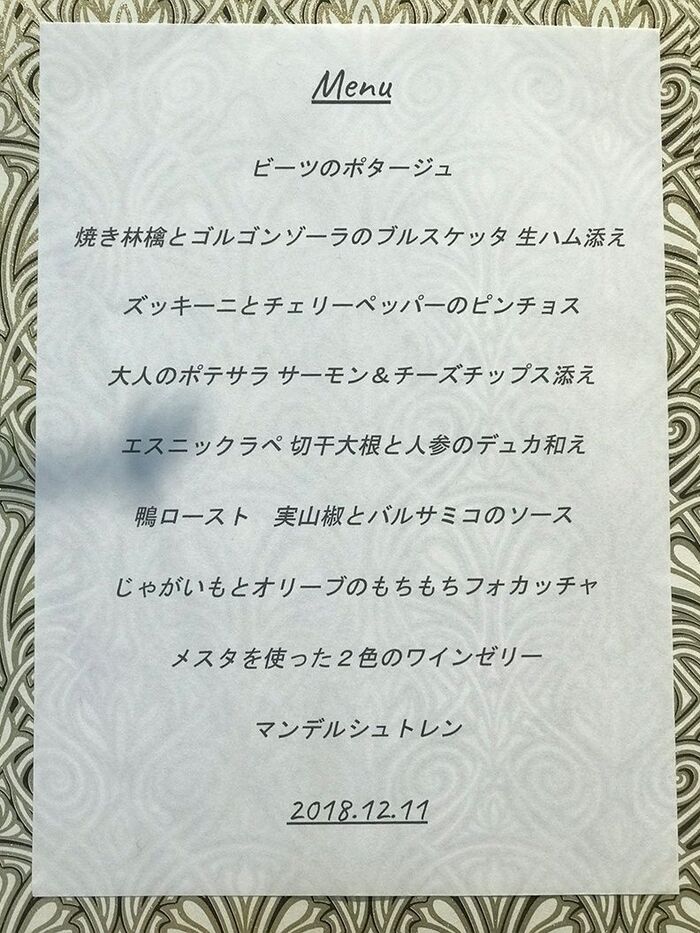 Menu
ビーツのポタージュ
焼き林檎とゴルゴンゾーラのブルスケッタ 生ハム添え
ズッキーニとチェリーペッパーのピンチョス
大人のポテサラ サーモン＆チーズチップス添え
エスニックラペ 切干大根と人参のデュカ和え
鴨ロースト　実山椒とバルサミコのソース
じゃがいもとオリーブのもちもちフォカッチャ
メスタを使った２色のワインゼリー
マンデルシュトレン
2018.12.11